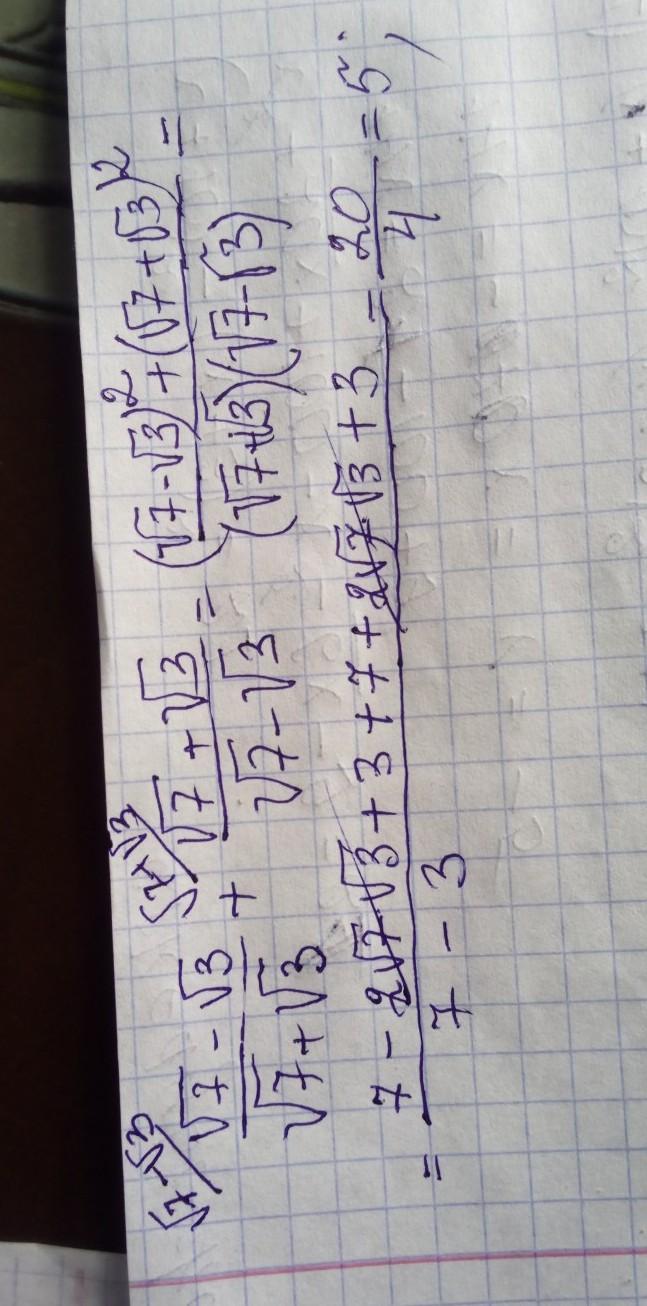 √7-√3/ (√7 - √3)/(√7 + √3) + √7+√3/ (√7 + √3)/(√7 - √3) = ((√7-√3)² + (√7+√3)²)/((√7+√3)(√7-√3)) =
= (7 - 2√7·√3 + 3 + 7 + 2√7·√3 + 3)/(7 - 3) = 20/4 = 5;